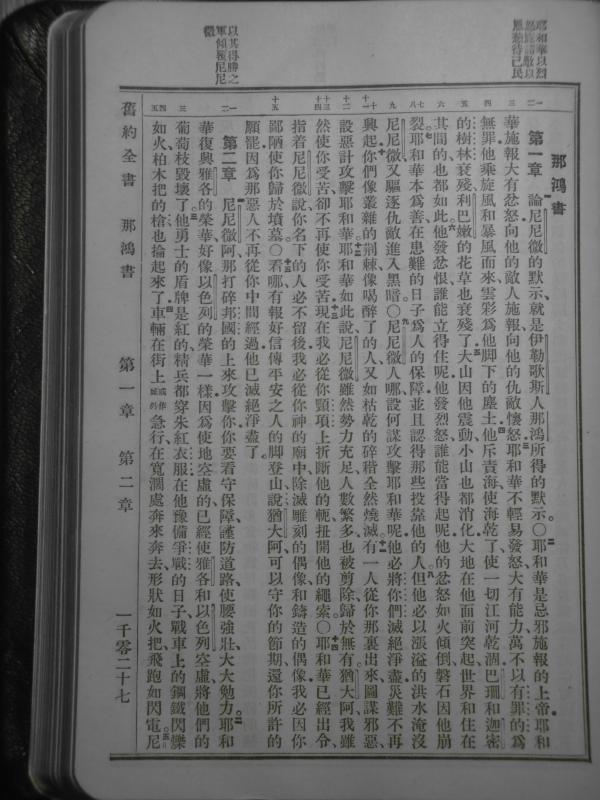 耶和華以烈
怒施諸敵以
恩慈待己民
以其得勝之
軍傾覆尼尼
微
那鴻書
第一章 論尼尼微的默示就是伊勒歌斯人那鴻所得的默示。○耶和華是忌邪施報的上帝耶和
華施報大有忿怒向他的敵人施報向他的仇敵懷怒耶和華不輕易發怒大有能力萬不以有罪的爲
無罪他乘旋風和暴風而來雲彩爲他脚下的塵土他斥責海使海乾了使一切江河乾涸巴珊和迦密
的樹林衰殘利巴嫩的花草也衰殘了大山因他震動小山也都消化大地在他面前突起世界和住在
其間的也都如此他發忿恨誰能立得住呢他發烈怒誰能當得起呢他的忿怒如火傾倒磐石因他崩
裂耶和華本爲善在患難的日子爲人的保障並且認得那些投靠他的人但他必以漲溢的洪水淹沒
尼尼微又驅逐仇敵進入黑暗。○尼尼微人哪設何謀攻擊耶和華呢他必將你們滅絕淨盡災難不再
興起你們像叢雜的荆棘像喝醉了的人又如枯乾的碎稭全然燒滅有一人從你那裏出來圖謀邪惡
設惡計攻擊耶和華耶和華如此說尼尼微雖然勢力充足人數繁多也被剪除歸於無有猶大阿我雖
然使你受苦卻不再使你受苦現在我必從你頸項上折斷他的軛扭開他的繩索。○耶和華已經出令
指着尼尼微說你名下的人必不留後我必從你神的廟中除滅雕刻的偶像和鑄造的偶像我必因你
鄙陋使你歸於墳墓。○看哪有報好信傳平安之人的脚登山說猶大阿可以守你的節期還你所許的
願罷因爲那惡人不再從你中間經過他已滅絕淨盡了。
第二章 尼尼微阿那打碎邦國的上來攻擊你你要看守保障謹防道路使腰強壯大大勉力耶和
華復興雅各的榮華好像以色列的榮華一樣因爲使地空虛的已經使雅各和以色列空虛將他們的
葡萄枝毀壞了他勇士的盾牌是紅的精兵都穿朱紅衣服在他豫備爭戰的日子戰車上的鋼鐵閃爍
如火柏木把的槍也掄起來了車輛在街上或作城外急行在寬濶處奔來奔去形狀如火把飛跑如閃電尼
舊約全書 那鴻書 第一章 第二章 一千零二十七